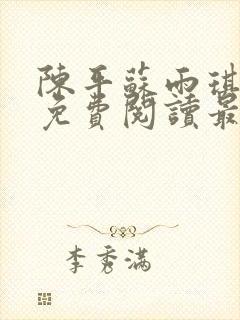 陳平蘇雨琪
免費閱讀最
李秀滿